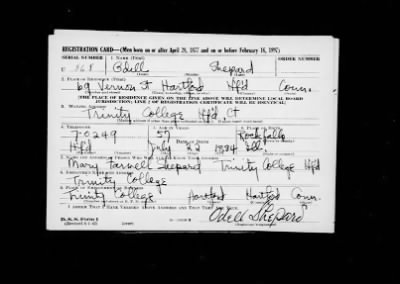 REGISTRATION CARD—(Men born on or after April 28, 1877 and on or before February 16, 1897)
SERIAL NUMBER 1. NAME (Print) ORDER NUMBER
U 968 Odell Shepard
2. PLACE OF RESIDENCE (Print)
69 Vernon St Hartford Htfd Conn.
[THE PLACE OF RESIDENCE GIVEN ON THE LINE ABOVE WILL DETERMINE LOCAL BOARD
JURISDICTION; LINE 2 OF REGISTRATION CERTIFICATE WILL BE IDENTICAL]
3. MAILING ADDRESS
Trinity College Htfd, Ct
4. TELEPHONE 5. AGE IN YEARS 6. PLACE OF BIRTH
7-0249 57 Rock Falls
DATE OF BIRTH
Htfd July 22 1884 Ill.
7. NAME AND ADDRESS OF PERSON WHO WILL ALWAYS KNOW YOUR ADDRESS
Mary Farwell Shepard Trinity College Htfd
8. EMPLOYER'S NAME AND ADDRESS
Trinity College
9. PLACE OF EMPLOYMENT OR BUSINESS
Trinity College Hartford Hartford Conn.
I AFFIRM THAT I HAVE VERIFIED ABOVE ANSWERS AND THAT THEY ARE TRUE.
D.S.S. Form 1
Odell Shepard